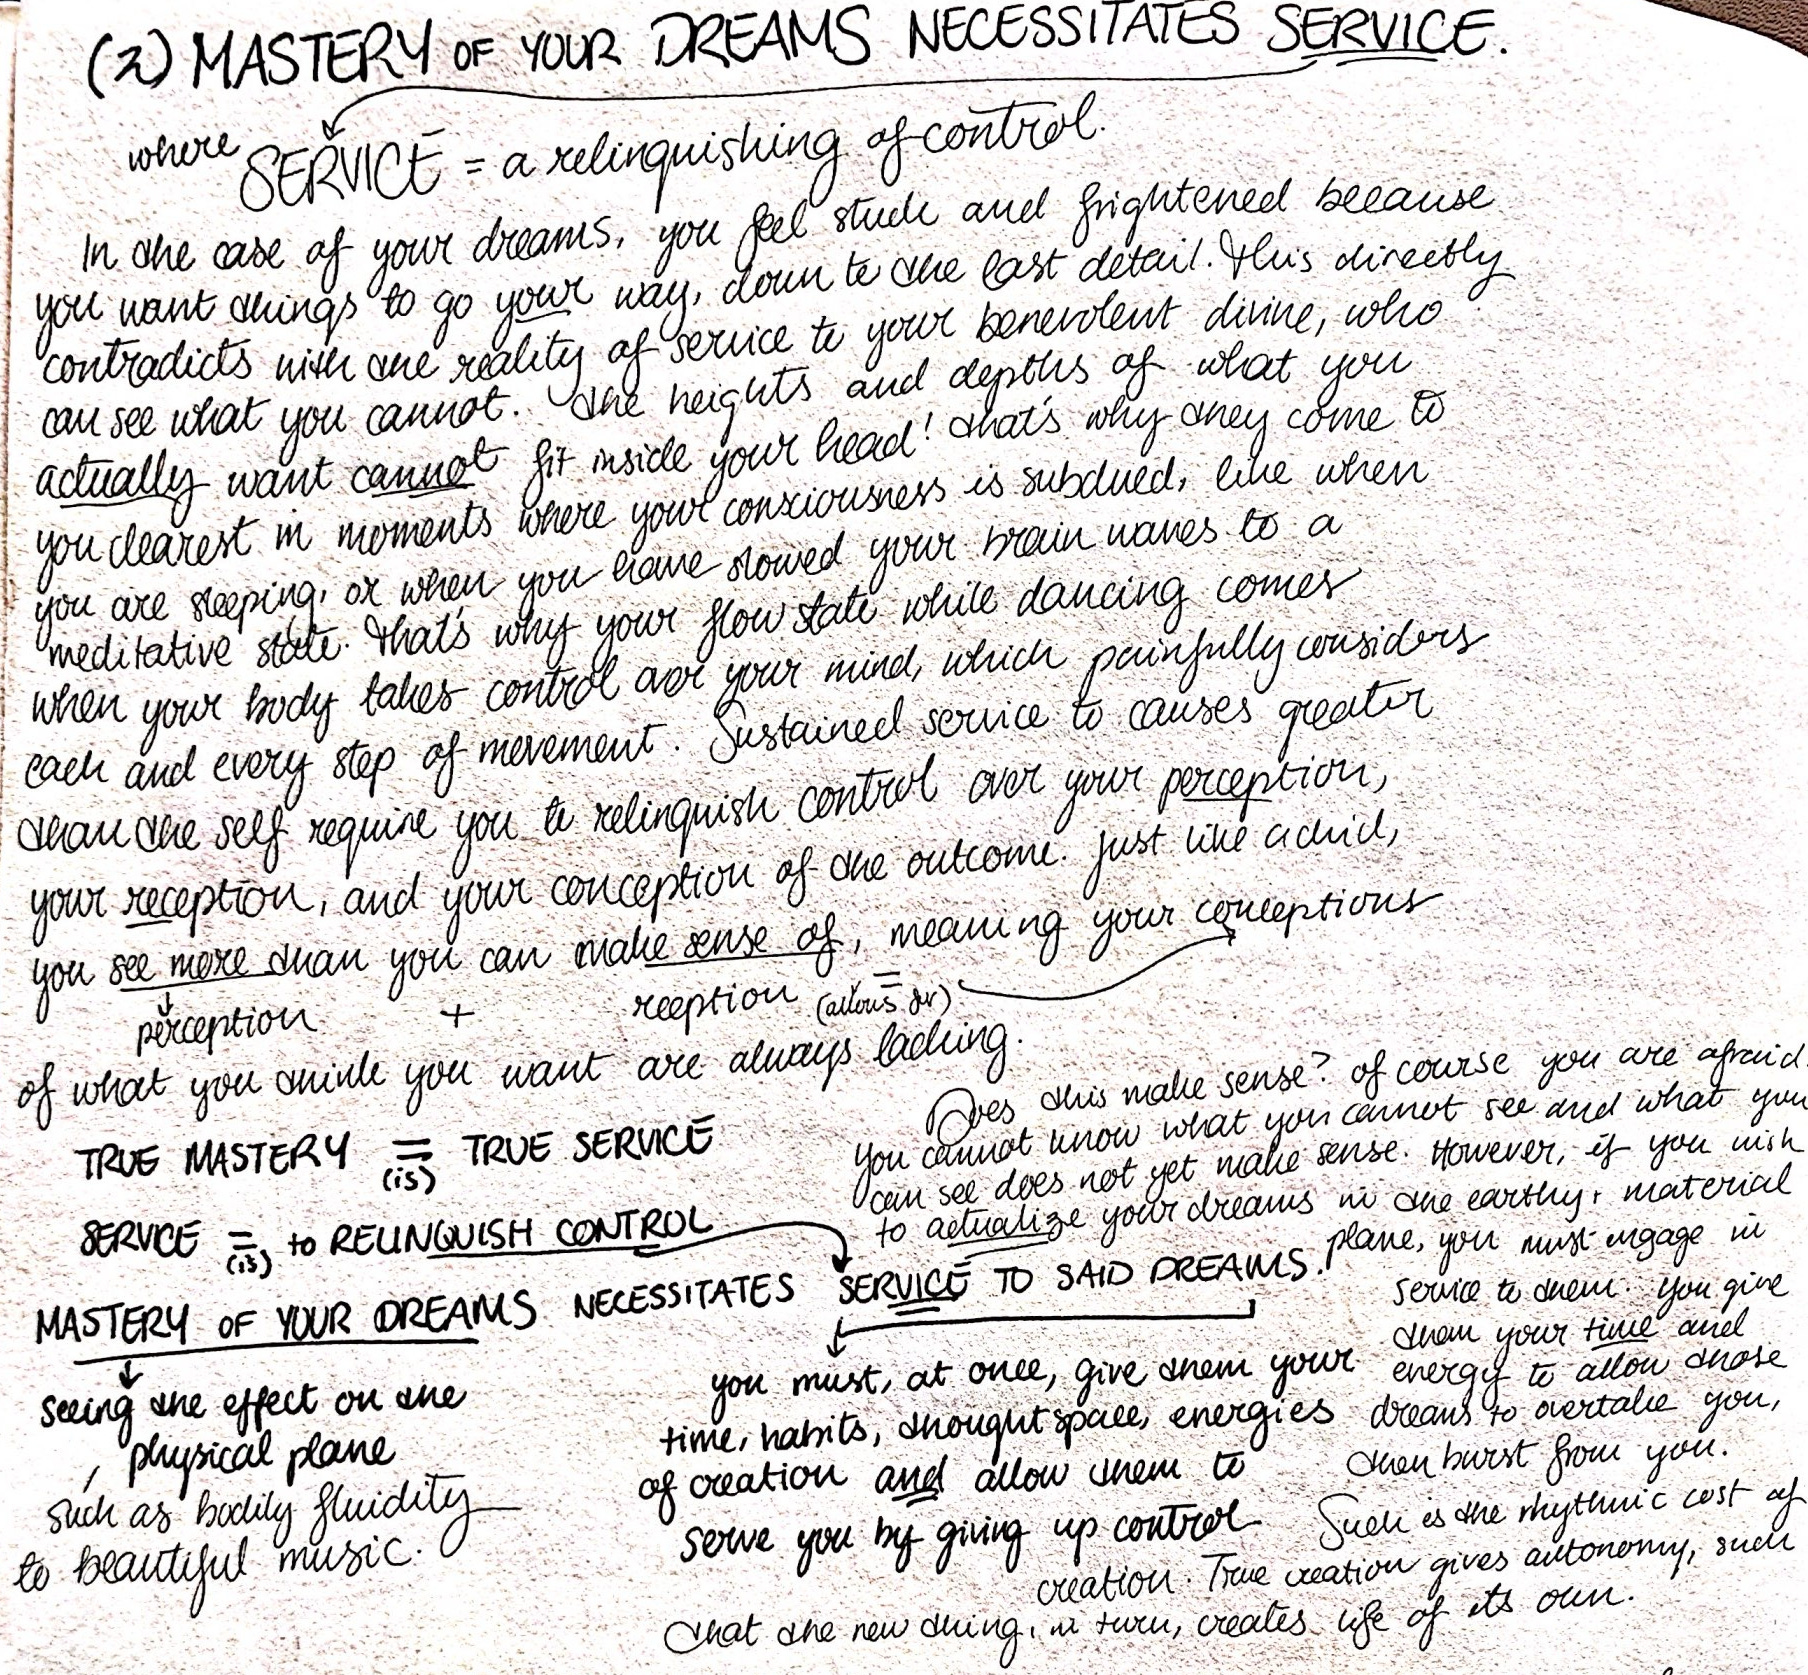 (2) MASTERY OF YOUR DREAMS NECESSITATES SERVICE.
where SERVICE = a relinquishing of control.
In the case of your dreams, you feel stuck and frightened because
you want things to go your way, down to the last detail. This directly
contradicts with the reality of service to your benevolent divine, who
can see what you cannot. The heights and depths of what you
actually want cannot fit inside your head! That's why they come to
you clearest in moments where your consciousness is subdued, like when
you are sleeping, or when you have slowed your brain waves to a
meditative state. That's why your flow state while dancing comes
when your body takes control over your mind, which painfully considers
each and every step of movement. Sustained service to causes greater
than the self require you to relinquish control over your perception,
your reception, and your conception of the outcome. Just like a child,
you see more than you can make sense of, meaning your conceptions
perception + reeption = (allows for)
of what you think you want are always lacking.
TRUE MASTERY = (is) TRUE SERVICE
SERVICE = (is) to RELINQUISH CONTROL
MASTERY OF YOUR DREAMS NECESSITATES SERVICE TO SAID DREAMS.
seeing the effect on the
physical plane
such as bodily fluidity
to beautiful music.
you must, at once, give them your
time, habits, thoughtspace, energies
of creation and allow them to
serve you by giving up control
Does this make sense? Of course you are afraid.
You cannot know what you cannot see and what you
can see does not yet make sense. However, if you wish
to actualize your dreams in the earthy, material
plane, you must engage in
service to them. You give
them your time and
energy to allow those
dreams to overtake you,
then burst from you.
Such is the rhythmic cost of
creation. True creation gives autonomy, such
that the new thing, in turn, creates life of its own.